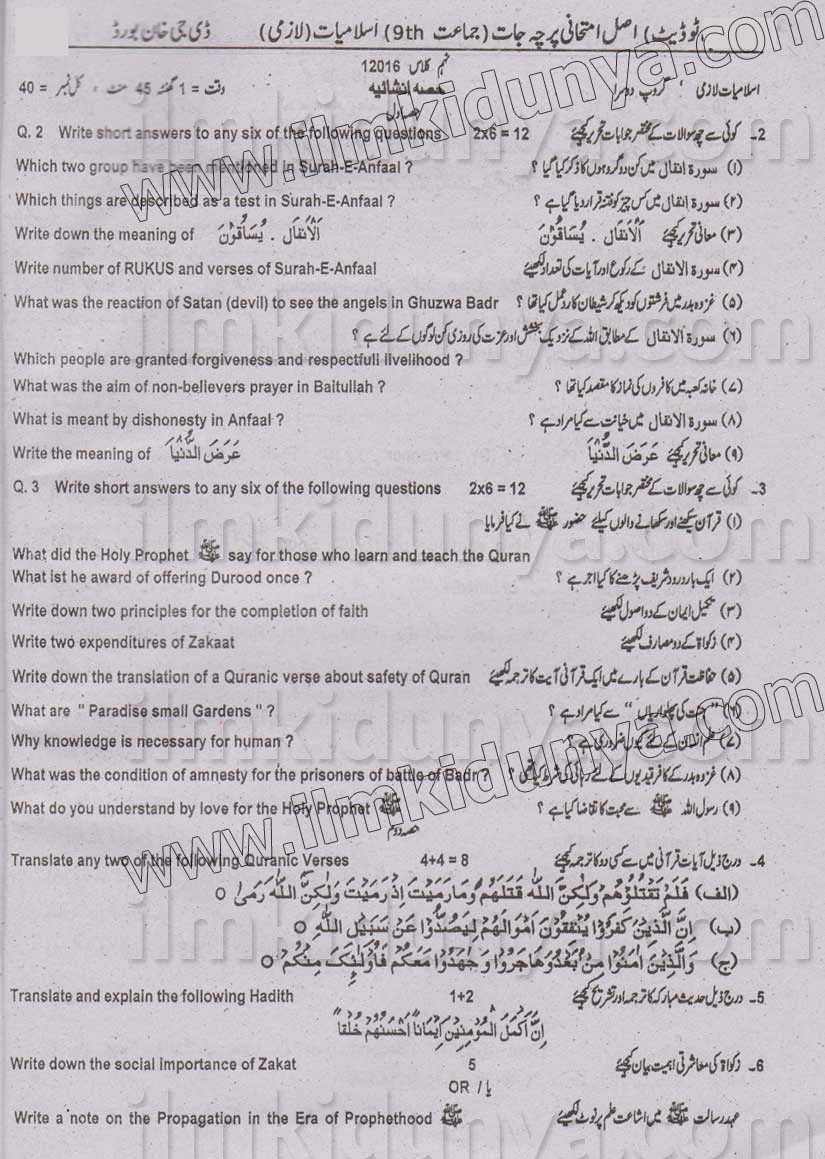 (ٹو ڈیٹ) اصل امتحانی پرچہ جات (جماعت 9th) اسلامیات (لازمی) ڈی جی خان بورڈ
نہم کلاس 12016
اسلامیات لازمی ، گروپ دوسرا حصہ انشائیہ وقت = 1 گھنٹہ 45 منٹ ، کل نمبر = 40
حصہ اول
Q. 2 Write short answers to any six of the following questions 2x6 = 12 2۔ کوئی سے چھ سوالات کے مختصر جوابات تحریر کیجئے
Which two group have been mentioned in Surah-E-Anfaal ? (۱) سورۃ انفال میں کن دو گروہوں کا ذکر کیا گیا ؟
Which things are described as a test in Surah-E-Anfaal ? (۲) سورۃ انفال میں کس چیز کو فتنہ قرار دیا گیا ہے ؟
Write down the meaning of اَلْاَنفَال . یُسَاقُوْنَ (۳) معانی تحریر کیجئے اَلْاَنفَال . یُسَاقُوْنَ
Write number of RUKUS and verses of Surah-E-Anfaal (۴) سورۃ الانفال کے رکوع اور آیات کی تعداد لکھیئے
What was the reaction of Satan (devil) to see the angels in Ghuzwa Badr (۵) غزوہ بدر میں فرشتوں کو دیکھ کر شیطان کا ردعمل کیا تھا ؟
(۶) سورۃ الانفال کے مطابق اللہ کے نزدیک بخشش اور عزت کی روزی کن لوگوں کے لئے ہے ؟
Which people are granted forgiveness and respectfull livelihood ?
What was the aim of non-believers prayer in Baitullah ? (۷) خانہ کعبہ میں کافروں کی نماز کا مقصد کیا تھا ؟
What is meant by dishonesty in Anfaal ? (۸) سورۃ الانفال میں خیانت سے کیا مراد ہے ؟
Write the meaning of عَرَضَ الدُّنْیَا (۹) معانی تحریر کیجئے عَرَضَ الدُّنْیَا
Q. 3 Write short answers to any six of the following questions 2x6 = 12 3۔ کوئی سے چھ سوالات کے مختصر جوابات تحریر کیجئے
(۱) قرآن سیکھنے اور سکھانے والوں کیلئے حضور ﷺ نے کیا فرمایا
What did the Holy Prophet ﷺ say for those who learn and teach the Quran
What ist he award of offering Durood once ? (۲) ایک بار درود شریف پڑھنے کا کیا اجر ہے ؟
Write down two principles for the completion of faith (۳) تکمیل ایمان کے دو اصول لکھیئے
Write two expenditures of Zakaat (۴) زکوٰۃ کے دو مصارف لکھیئے
Write down the translation of a Quranic verse about safety of Quran (۵) حفاظت قرآن کے بارے میں ایک قرآنی آیت کا ترجمہ لکھیئے
What are " Paradise small Gardens " ? (۶) " جنت کی پھلواریاں " سے کیا مراد ہے ؟
Why knowledge is necessary for human ? (۷) علم انسان کے لئے کیوں ضروری ہے ؟
What was the condition of amnesty for the prisoners of battle of Badr ? (۸) غزوہ بدر کے کافر قیدیوں کے لئے رہائی کی شرط کیا تھی ؟
What do you understand by love for the Holy Prophet ﷺ (۹) رسول اللہ ﷺ سے محبت کا تقاضا کیا ہے ؟
حصہ دوم
Translate any two of the following Quranic Verses 4+4 = 8 4۔ درج ذیل آیات قرآنی میں سے کسی دو کا ترجمہ کیجئے
(الف) فَلَمْ تَقْتُلُوْهُمْ وَلٰكِنَّ اللّٰهَ قَتَلَهُمْ وَمَا رَمَيْتَ اِذْ رَمَيْتَ وَلٰكِنَّ اللّٰهَ رَمٰى ○
(ب) اِنَّ الَّذِيْنَ كَفَرُوْا يُنْفِقُوْنَ اَمْوَالَهُمْ لِيَصُدُّوْا عَنْ سَبِيْلِ اللّٰهِ ○
(ج) وَالَّذِيْنَ اٰمَنُوْا مِنْۢ بَعْدُ وَهَاجَرُوْا وَجٰهَدُوْا مَعَكُمْ فَاُولٰٓئِكَ مِنْكُمْ ○
Translate and explain the following Hadith 1+2 5۔ درج ذیل حدیث مبارکہ کا ترجمہ اور تشریح کیجئے
اِنَّ اَكْمَلَ الْمُؤْمِنِيْنَ اِيْمَانًا اَحْسَنُهُمْ خُلُقًا
Write down the social importance of Zakat 5 6۔ زکوٰۃ کی معاشرتی اہمیت بیان کیجئے
OR / یا
Write a note on the Propagation in the Era of Prophethood ﷺ عہد رسالت ﷺ میں اشاعت علم پر نوٹ لکھیئے
www.ilmkidunya.com
www.ilmkidunya.com
ilmkidunya.com
ilmkidunya.com
ilmkidunya.com
ilmkidunya.com
ilmkidunya.com